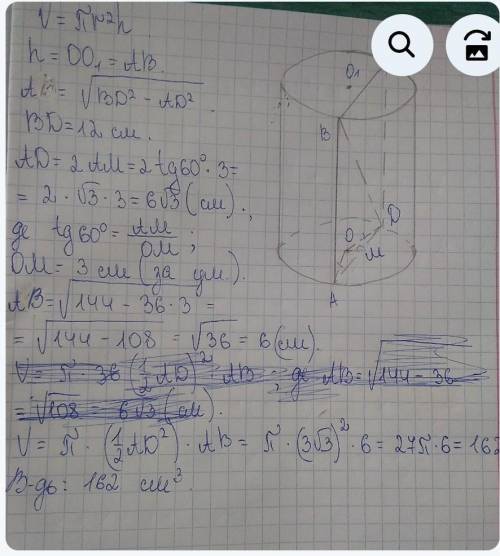 V = πr²h
h = OO₁ = AB.
AB = √(BD² − AD²)
BD = 12 см.
AD = 2 AM = 2 tg60° · 3 =
= 2 · √3 · 3 = 6√3 (см).,
де tg60° = AM/OM ;
OM = 3 см (за ум.).
AB = √(144 − 36 · 3) =
= √(144 − 108) = √36 = 6 (см).
V = π · 36 (½ AD)² · AB , де AB = √(144 − 36
= √108 = 6√3 (см).
V = π · (½ AD²) · AB = π · (3√3)² · 6 = 27π · 6 = 162
В-дь: 162 см³.
O₁
B
D
O
M
A